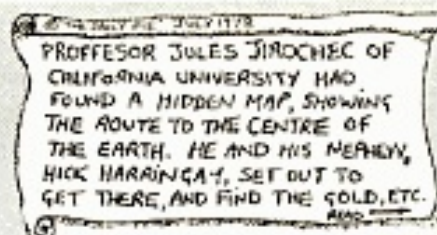 JULY 1978
PROFFESOR JULES JIROCHEC OF
CALIFORNIA UNIVERSITY HAD
FOUND A HIDDEN MAP, SHOWING
THE ROUTE TO THE CENTRE OF
THE EARTH. HE AND HIS NEPHEW,
HICK HARRINGAY, SET OUT TO
GET THERE, AND FIND THE GOLD, ETC.
READ